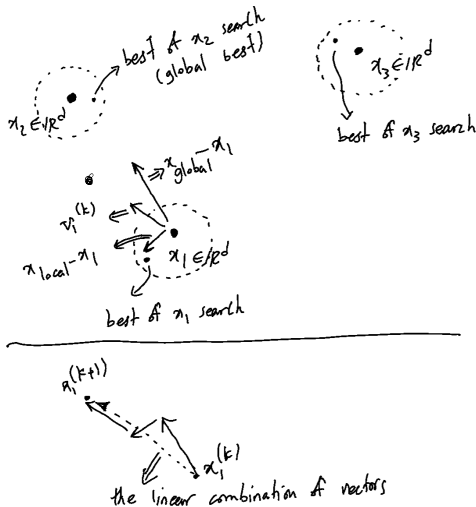 best of x₂ search
(global best)
x₂ ∈ ℝᵈ
x₃ ∈ ℝᵈ
best of x₃ search
⇒ x_global − x₁
v₁⁽ᵏ⁾
x_local − x₁
x₁ ∈ ℝᵈ
best of x₁ search
x₁⁽ᵏ⁺¹⁾
x₁⁽ᵏ⁾
the linear combination of vectors